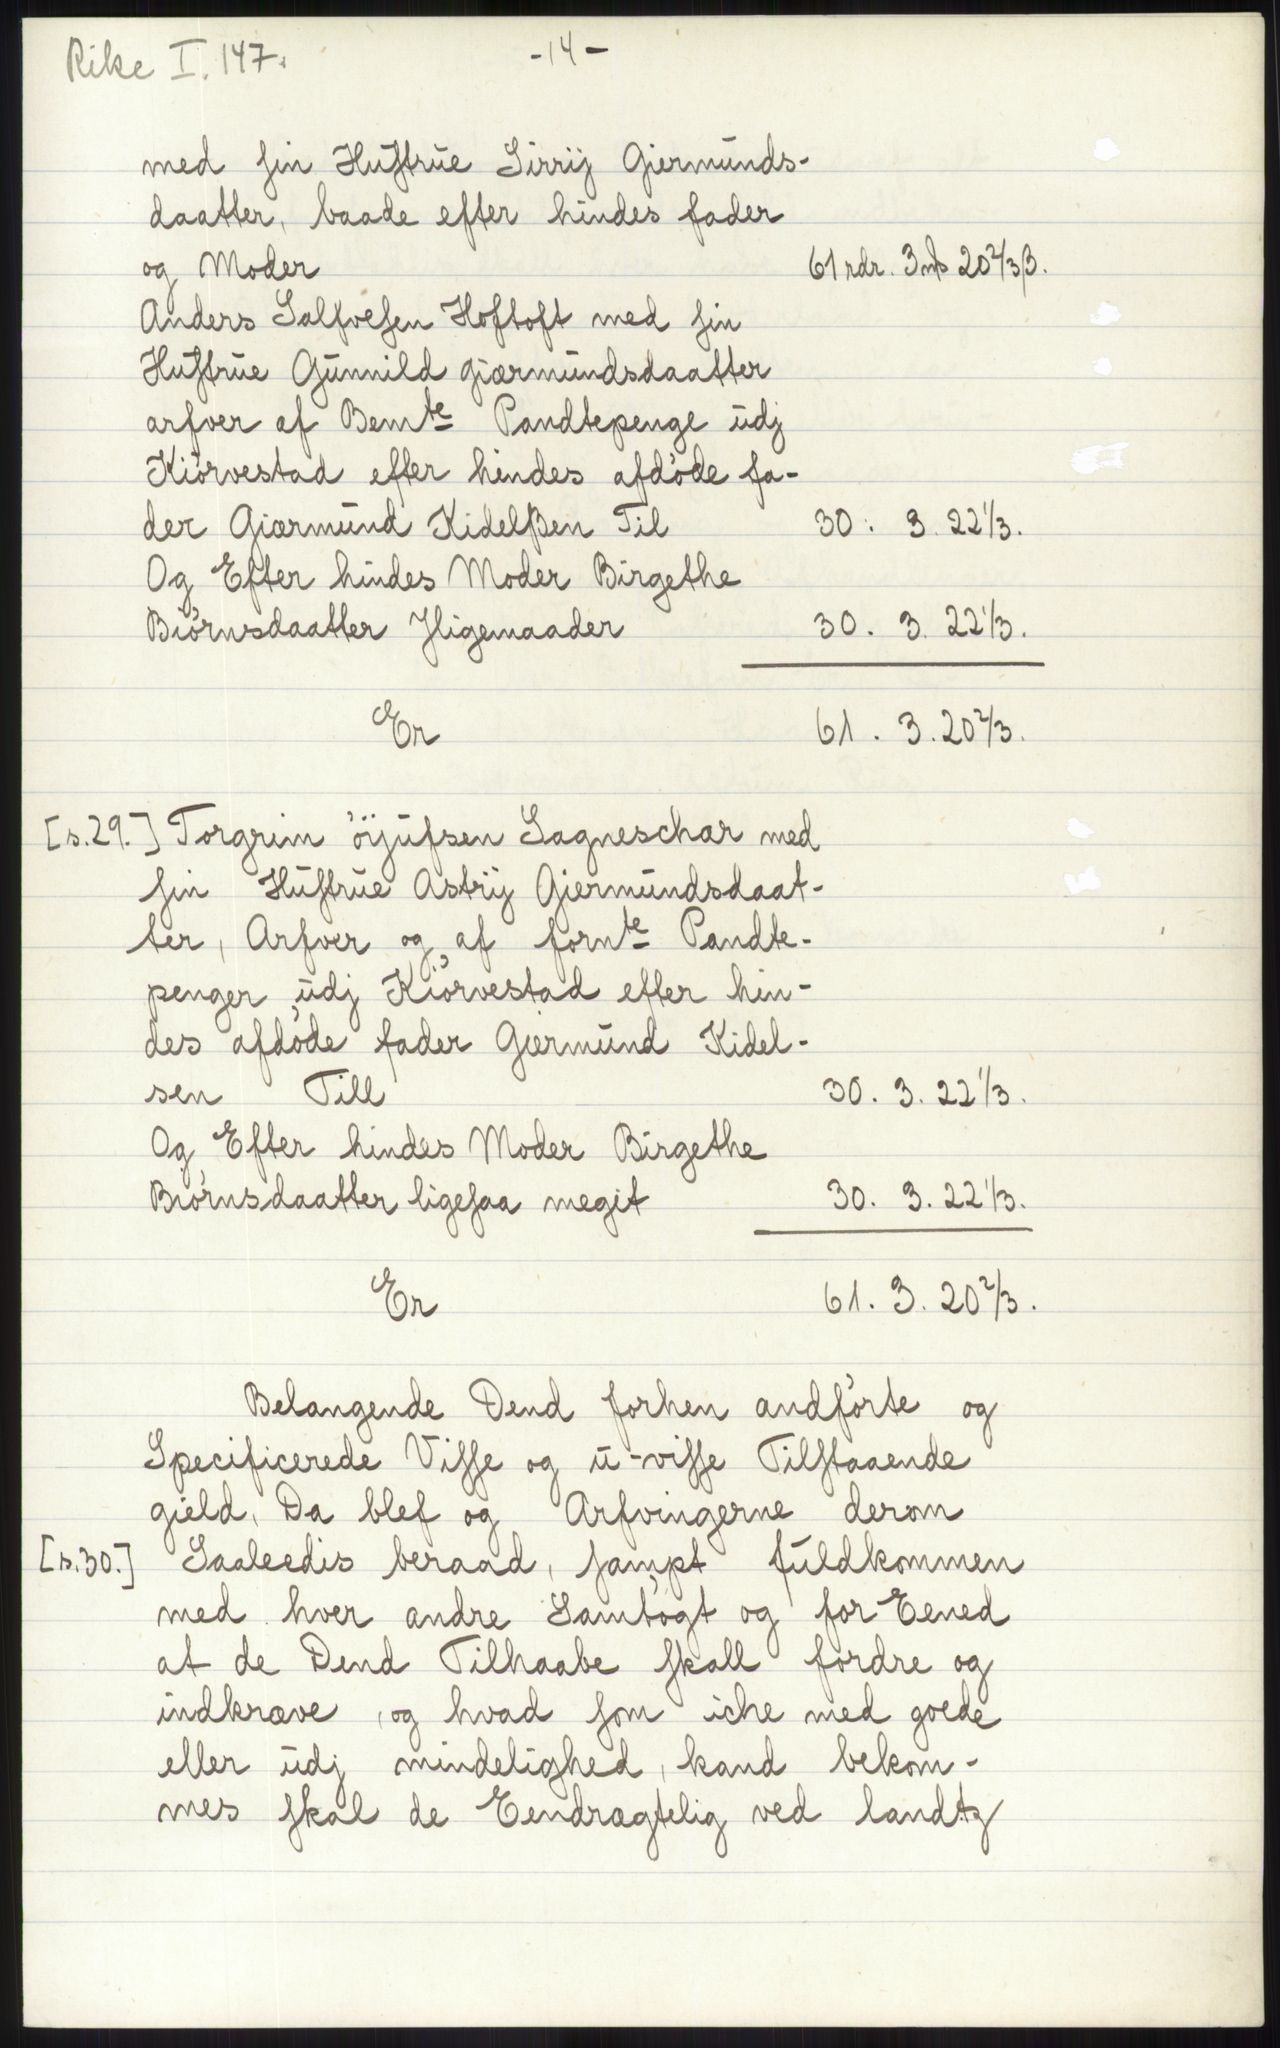 Rike I. 147.
-14-
med sin Hustrue Sirrij Giermunds-
daatter, baade efter hindes fader
og Moder 61 rdr. 3 mk 20 2/3 β.
Anders Salfvesen Hoftoft med sin
Hustrue Gunnild giærmundsdaatter
arfver af Bemte Pandtepenge udj
Kiörvestad efter hindes afdöde fa-
der Giærmund Kidelßen Til 30. 3. 22 1/3.
Og Efter hindes Moder Birgethe
Biörnsdaatter Jligemaader 30. 3. 22 1/3.
Er 61. 3. 20 2/3.
[s.29.] Torgrim öÿufsen Sagneschar med
sin Hustrue Astrij Giermundsdaat-
ter, Arfver og af fornte Pandte-
penger udj Kiörvestad efter hin-
des afdöde fader Giermund Kidel-
sen Till 30. 3. 22 1/3.
Og Efter hindes Moder Birgethe
Biörnsdaatter ligesaa megit 30. 3. 22 1/3.
Er 61. 3. 20 2/3.
Belangende Dend forhen andförte og
Specificerede Visse og u-visse Tilstaaende
gield, Da blef og Arfvingerne derom
[s.30.] Saaleedis beraad, sampt fuldkommen
med hver andre Samtögt og for Eened
at de Dend Tilhaabe skall fordre og
indkræve, og hvad som iche med goede
eller udj mindelighed, kand bekom-
mes skal de Eendragtelig ved landtz